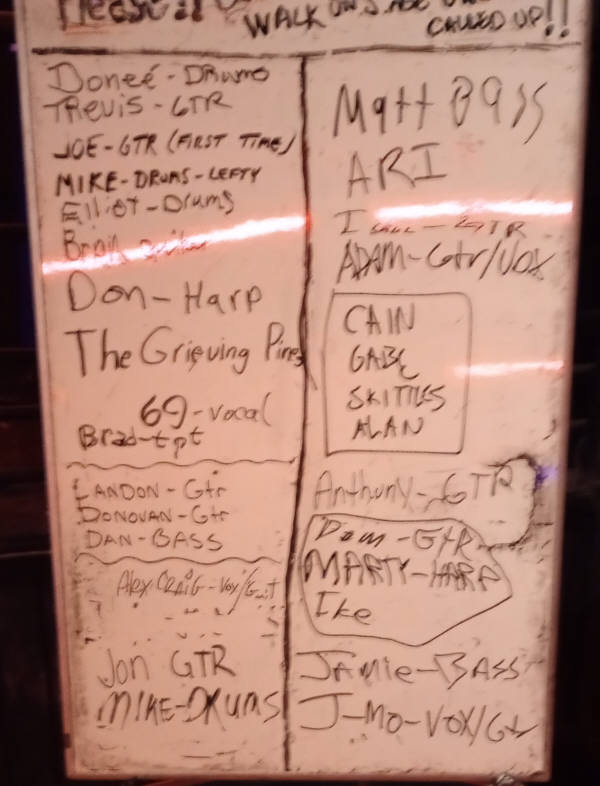 Please
WALK
CALLED UP!!
Doneé - DRUMS
TREVIS - GTR
JOE - GTR (FIRST TIME)
MIKE - DRUMS - LEFTY
Elliot - Drums
Don - Harp
The Grieving Pines
69 - vocal
Brad - tpt
LANDON - Gtr
DONOVAN - Gtr
DAN - BASS
Alex Craig - vox/Guit
Jon GTR
MIKE - DRUMS
Matt BASS
ARI
GTR
ADAM - Gtr/VOX
CAIN
GABE
SKITTLES
ALAN
Anthony - GTR
Dom - GTR
MARTY - HARP
Ike
Jamie - BASS
J-Mo - VOX/Gtr